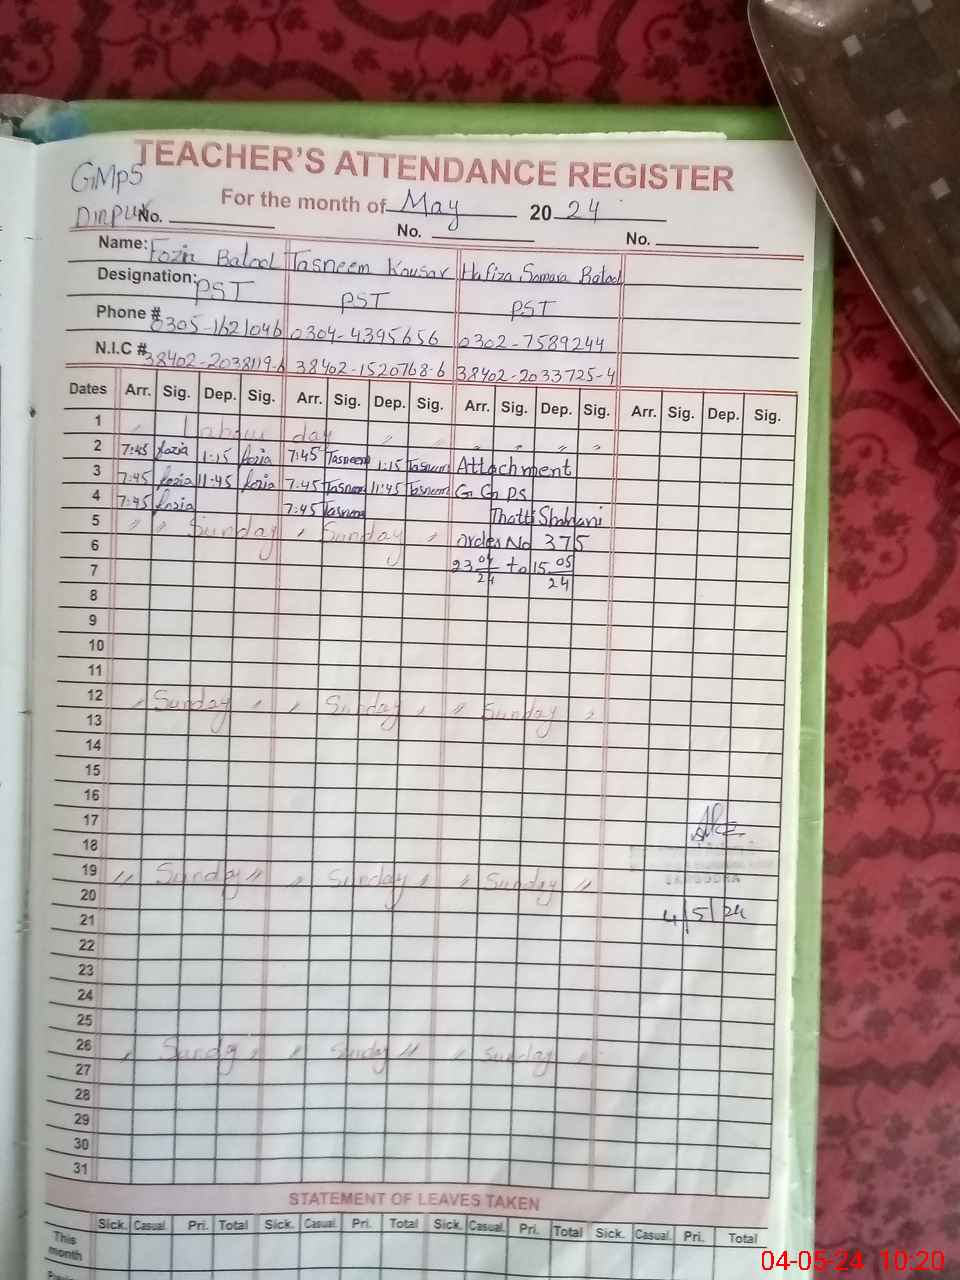 TEACHER'S ATTENDANCE REGISTER
GMPS
For the month of May 20 24
No. No. No.
Name: Fozia Batool Tasneem Kousar Hafiza Samara Batool
Designation: PST PST PST
Phone # 0305-1621046 0304-4395656 0302-7589244
N.I.C # 38402-2038119-6 38402-1520768-6 38402-2033725-4
Dates Arr. Sig. Dep. Sig. Arr. Sig. Dep. Sig. Arr. Sig. Dep. Sig. Arr. Sig. Dep. Sig.
1 " Labour day " " " " " "
2 7:45 fozia 1:15 fozia 7:45 Tasneem 1:15 Tasneem Attachment
3 7:45 fozia 11:45 fozia 7:45 Tasneem 11:45 Tasneem G G PS
4 7:45 fozia 7:45 Tasneem Thatti Shahani
5 " " Sunday " Sunday " order No 375
6 23 04/24 to 15 05/24
7
8
9
10
11
12 " Sunday " " Sunday " " Sunday "
13
14
15
16
17
18
19 " Sunday " " Sunday " " Sunday "
SARGODHA
20
21 4/5/24
22
23
24
25
26 " Sunday " " Sunday " " Sunday "
27
28
29
30
31
STATEMENT OF LEAVES TAKEN
Sick. Casual. Pri. Total Sick. Casual. Pri. Total Sick. Casual. Pri. Total Sick. Casual. Pri. Total
This month
04-05-24 10:20